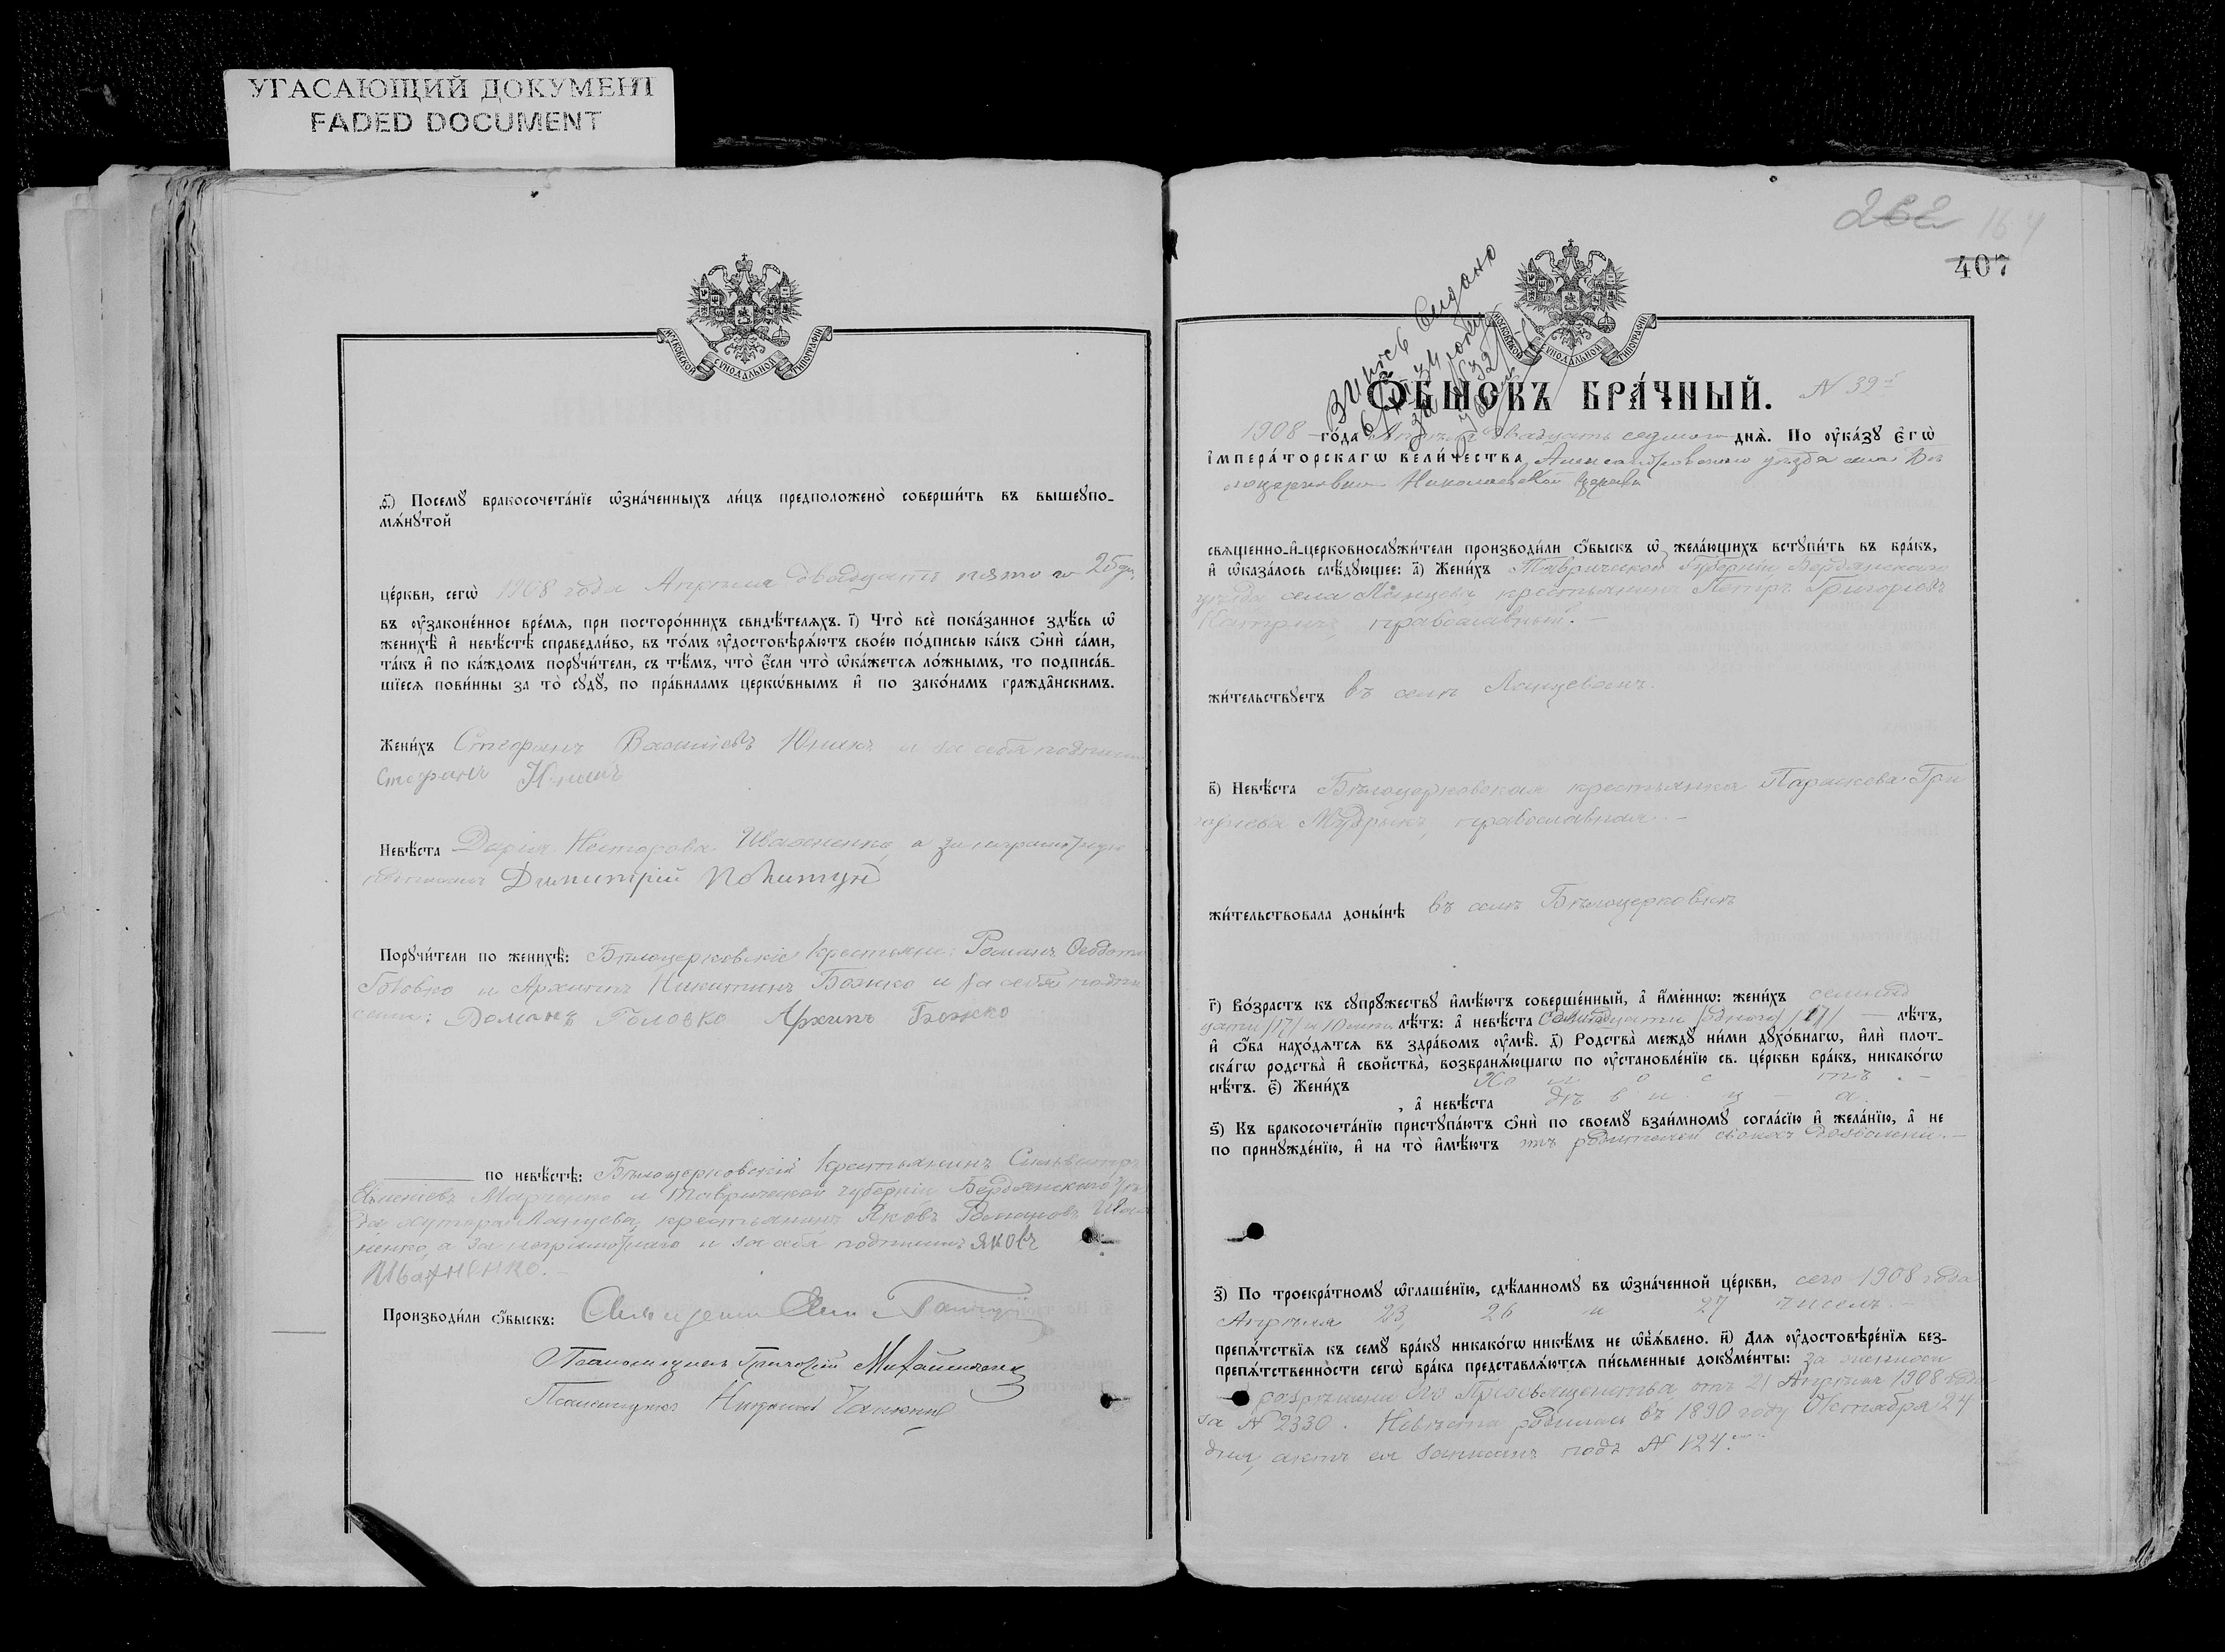 УГАСАЮЩИЙ ДОКУМЕНТ
FADED DOCUMENT
МОСКОВСКОЙ СѴНОДАЛЬНОЙ ТИПОГРАФІИ
ѳ҃) Посемꙋ бракосочетáнїе ѡ҆знáченныхъ ли́цъ предположенò соверши́ть въ вышеꙋпо-
мѧ́нꙋтой
це́ркви, сегѡ̀ 1908 года Апрѣля двадцать пятого 25 дн.
въ ᲂу҆законе́нное вре́мѧ, при посторо́ннихъ свидѣ́телѧхъ. і҃) Чтò всѐ покáзанное здѣ́сь ѡ҆
женихѣ̀ и҆ невѣ́стѣ справедли́во, въ то́мъ ᲂу҆достовѣрѧ́ютъ свое́ю по́дписью кáкъ ѻ҆нѝ сáми,
тáкъ и҆ по кáждомъ порꙋчи́тели, съ тѣ́мъ, чтò є҆́сли чтò ѡ҆кáжетсѧ ло́жнымъ, то подписáв-
шїесѧ пови́нны за тò сꙋдꙋ̀, по прáвиламъ церкѡ́внымъ и҆ по зако́намъ граждáнскимъ.
Жени́хъ Стефанъ Васильевъ Юнинъ и за себя подписа
Стефанъ Юнинъ
Невѣ́ста Дарія Несторова Ивахненко, а за неграмотную
Димитрій
Порꙋчи́тели по женихѣ̀: Бѣлоцерковскіе крестьяне: Романъ
Головко и Архипъ Никитинъ Божко и за себя подпи
сали: Романъ Головко Архипъ Божко
по невѣ́стѣ: Бѣлоцерковскій крестьянинъ
Марченко и Таврической губерніи Бердянскаго уѣз
да хутора Ланцева, крестьянинъ Яковъ Романовъ Ивах
ненко, а за неграмотнаго и за себя подписалъ Яковъ
Ивахненко.
Производи́ли ѻ҆́быскъ: Священникъ
Псаломщикъ Григорій Михайличенко
Псаломщикъ
262 164
407
МОСКОВСКОЙ СѴНОДАЛЬНОЙ ТИПОГРАФІИ
Витяг видано
34 року
за № 32
Ѻ҆́БЫСКЪ БРА́ЧНЫЙ. № 39й
1908 го́да Апрѣля двадцать седьмого днѧ̀. По ᲂу҆кáзꙋ є҆гѡ̀
і҆мперáторскагѡ вели́чества Александровскаго уѣзда села Бѣ
лоцерковки Николаевской церкви
свѧщенно-и҆-церковнослꙋжи́тели производи́ли ѻ҆́быскъ ѡ҆ желáющихъ встꙋпи́ть въ брáкъ,
и҆ ѡ҆казáлось слѣ́дꙋющее: а҃) Жени́хъ Таврической губерніи Бердянскаго
уѣзда села Ланцева, крестьянинъ Петръ Григорьевъ
православный. –
жи́тельствꙋетъ въ селѣ
в҃) Невѣ́ста Бѣлоцерковская крестьянка Параскева Гри
горьева Мудрыкъ, православная. –
жи́тельствовала доны́нѣ въ селѣ Бѣлоцерковкѣ
г҃) Во́зрастъ къ сꙋпрꙋ́жествꙋ и҆мѣ́ютъ соверше́нный, а҆ и҆́меннѡ: жени́хъ семнад
цати /17/ лѣ́тъ: а҆ невѣ́ста /17/ – лѣ́тъ,
и҆ ѻ҆́ба нахо́дѧтсѧ въ здрáвомъ ᲂу҆мѣ̀. д҃) Родствà междꙋ ни́ми дꙋхо́внагѡ, и҆лѝ плот-
скáгѡ родствà и҆ свойствà, возбранѧ́ющагѡ по ᲂу҆становле́нїю св. це́ркви брáкъ, никако́гѡ
нѣ́тъ. є҃) Жени́хъ холостъ. –
, а҆ невѣ́ста дѣвица.
ѕ҃) Къ бракосочетáнїю пристꙋпáютъ ѻ҆нѝ по своемꙋ̀ взаи́мномꙋ соглáсїю и҆ желáнїю, а҆ не
по принꙋжде́нїю, и҆ на тò и҆мѣ́ютъ отъ родителей своихъ дозволеніе. –
з҃) По троекрáтномꙋ ѡ҆глаше́нїю, сдѣ́ланномꙋ въ ѡ҆знáченной це́ркви, сего 1908 года
Апрѣля 23, 26 и 27 чиселъ. –
препѧ́тствїѧ къ семꙋ̀ брáкꙋ никако́гѡ никѣ́мъ не ѡ҆б̾ѧ́влено. и҃) Длѧ ᲂу҆достовѣре́нїѧ без-
препѧ́тственности сегѡ̀ брáка представлѧ́ютсѧ пи́сьменные докꙋме́нты:
Его Преосвященства отъ 21 Апрѣля 1908 года
за № 2330. Невѣста родилась въ 1890 году Октября 24
дня, актъ ея записанъ подъ № 124.